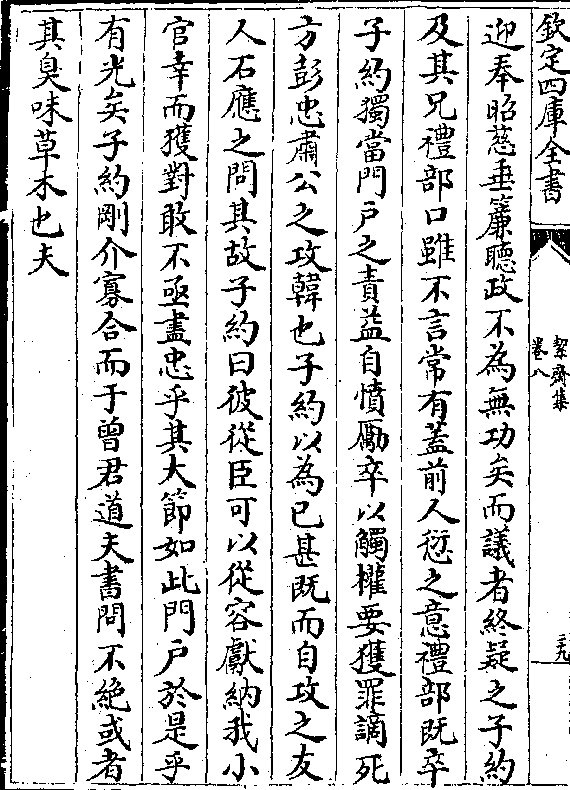 欽定四庫全書
絜齋集
卷八
二九
迎奉昭慈垂簾聽政不為無功矣而議者終疑之子約
及其兄禮部口雖不言常有蓋前人愆之意禮部既卒
子約獨當門户之責益自憤勵卒以觸權要獲罪謫死
方彭忠肅公之攻韓也子約以為已甚既而自攻之友
人石應之問其故子約曰彼從臣可以從容獻納我小
官幸而獲對敢不亟盡忠乎其大節如此門户於是乎
有光矣子約剛介寡合而于曾君道夫書問不絶或者
其臭味草木也夫